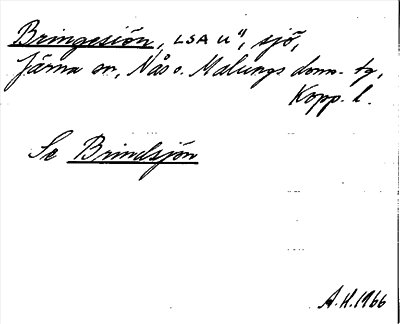 Bringesjön, LSA U", sjö,
Järna sn, Nås o. Malungs doms. tg,
Kopp. l.
Se Brindsjön
A.H.1966